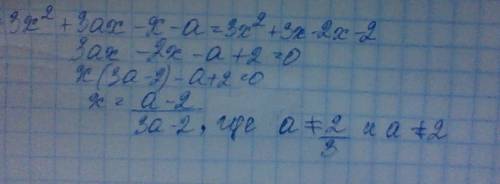 3x² + 3ax - x - a = 3x² + 3x - 2x - 2
3ax - 2x - a + 2 = 0
x(3a - 2) - a + 2 = 0
x = (a - 2)/(3a - 2), где a ≠ 2/3 и a ≠ 2